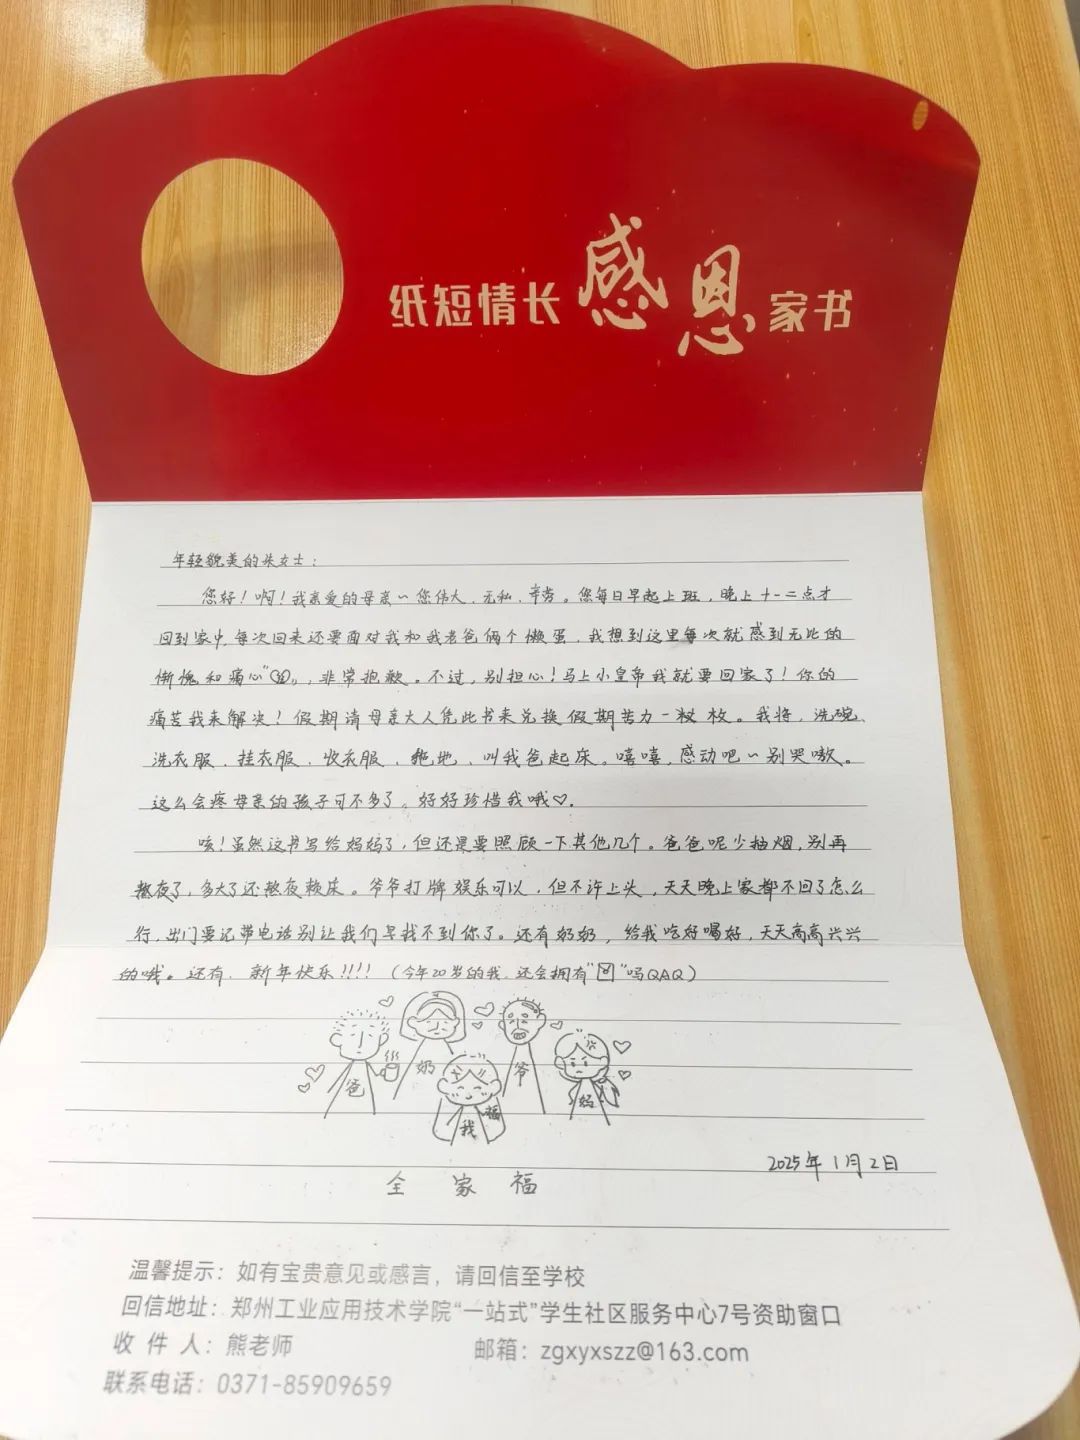 纸短情长 感恩 家书
年轻貌美的朱女士：
您好！啊！我亲爱的母亲～您伟大、无私、辛劳。您每日早起上班，晚上十一二点才
回到家中，每次回来还要面对我和我老爸俩个懒蛋，我想到这里每次就感到无比的
惭愧和痛心“”，非常抱歉。不过，别担心！马上小皇帝我就要回家了！你的
痛苦我来解决！假期请母亲大人凭此书来兑换假期苦力一枚。我将，洗碗、
洗衣服、挂衣服、收衣服、拖地、叫我爸起床。嘻嘻，感动吧～别哭嗷。
这么会疼母亲的孩子可不多了，好好珍惜我哦♡.
咳！虽然这书写给妈妈了，但还是要照顾一下其他几个。爸爸呢少抽烟，别再
熬夜了，多大了还熬夜赖床。爷爷打牌娱乐可以，但不许上头，天天晚上家都不回了怎么
行，出门要记带电话别让我们早找不到你了。还有奶奶，给我吃好喝好，天天高高兴兴
的哦。还有，新年快乐！！！！（今年20岁的我，还会拥有“”吗QAQ）
爸
奶
我
福
爷
妈
2025年1月2日
全 家 福
温馨提示：如有宝贵意见或感言，请回信至学校
回信地址：郑州工业应用技术学院“一站式”学生社区服务中心7号资助窗口
收 件 人：熊老师 邮箱：zgxyxszz@163.com
联系电话：0371-85909659